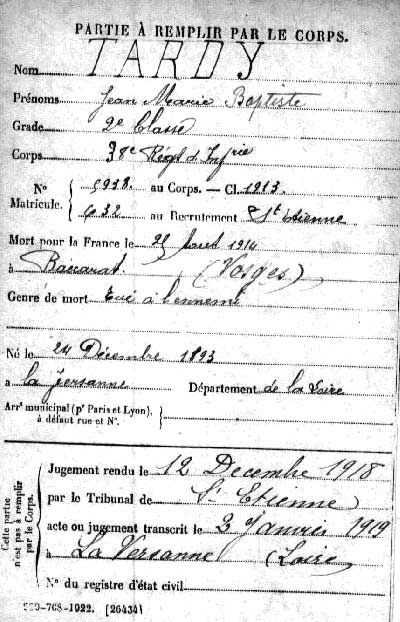 PARTIE À REMPLIR PAR LE CORPS.
Nom TARDY
Prénoms Jean Marie Baptiste
Grade 2e Classe
Corps 38e Régt d'Infrie
N° Matricule. { 5938. au Corps. — Cl. 1913.
632 au Recrutement St Etienne
Mort pour la France le 25 Août 1914
à Baccarat (Vosges)
Genre de mort Tué à l'ennemi
Né le 24 Décembre 1893
à la Versanne Département de la Loire
Arrt municipal (pr Paris et Lyon), à défaut rue et N°.
Cette partie n'est pas à remplir par le Corps.
Jugement rendu le 12 Decembre 1918
par le Tribunal de St Etienne
acte ou jugement transcrit le 3 Janvier 1919
à La Versanne (Loire)
N° du registre d'état civil
550-708-1922. [26434]